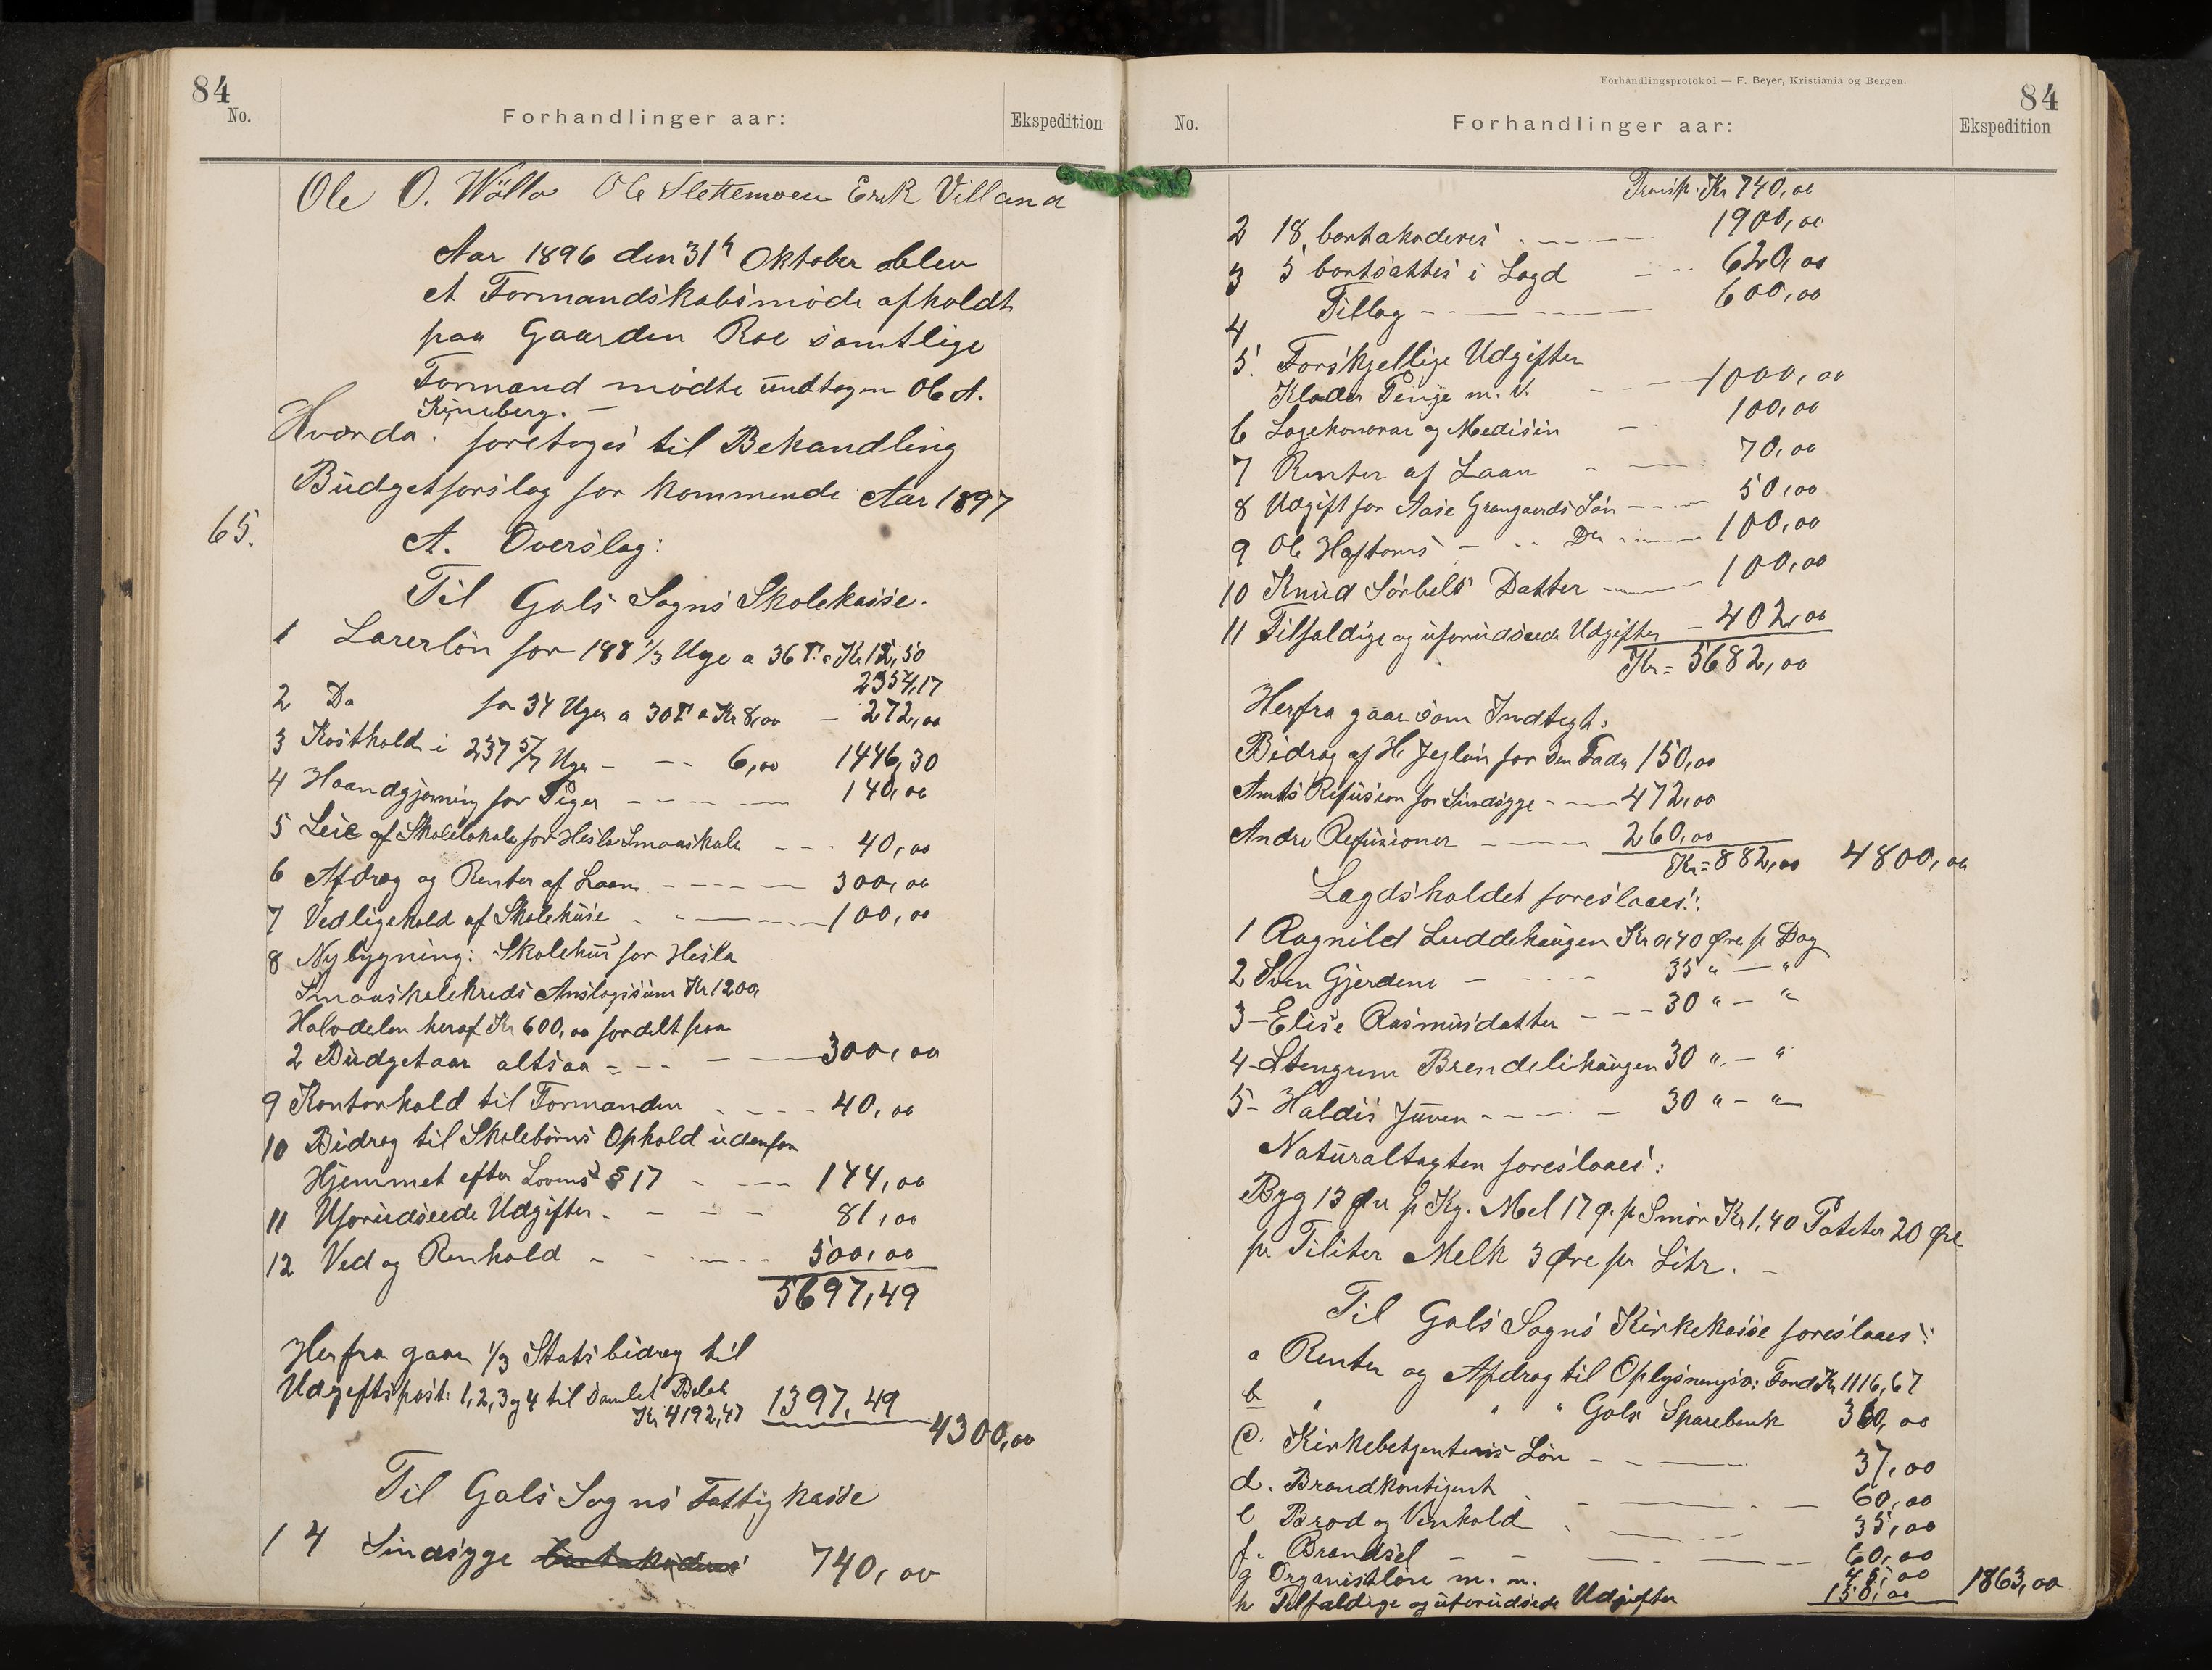 84
No.
Forhandlinger aar:
Ekspedition
Ole O. Wøllo Ole Slettemoen Erik Villand
Aar 1896 den 31te Oktober blev
et Formandskabsmøde afholdt
paa Gaarden Roe samtlige
Formænd mødte undtagen Ole A.
Kinneberg. –
Hvorda foretoges til Behandling
Budgetforslag for kommende Aar 1897
65.
A. Overslag:
Til Gols Sogns Skolekasse.
1 Lærerløn for 188 1/3 Uge a 36 T. a Kr 12,50
2354,17
2 Do for 34 Uger a 30 T a Kr 8,00 – 272,00
3 Kosthold i 237 5/7 Uge – – – 6,00 1446,30
4 Haandgjerning for Piger – – – – 140,00
5 Leie af Skolelokale for Hesla Smaaskole – – – 40,00
6 Afdrag og Renter af Laan – – – – 300,00
7 Vedligehold af Skolehuse – – – 100,00
8 Nybygning: Skolehus for Hesla
Smaaskolekreds Anslagssum Kr 1200,
Halvdelen heraf Kr 600,00 fordelt paa
2 Budgetaar altsaa – – – – 300,00
9 Kontorhold til Formanden – – – 40,00
10 Bidrag til Skolebørns Ophold udenfor
Hjemmet efter Lovens § 17 – – – 144,00
11 Uforudseede Udgifter – – – – 81,00
12 Ved og Renhold – – – – 500,00
5697,49
Herfra gaar 1/3 Statsbidrag til
Udgiftspost: 1, 2, 3 og 4 til samlet Beløb
Kr 4192,47 1397,49
4300,00
Til Gols Sogns Fattigkasse
1 4 Sindsyge bortakkoderes 740,00
Forhandlingsprotokol — F. Beyer, Kristiania og Bergen.
84
No.
Forhandlinger aar:
Ekspedition
Transp. Kr 740,00
2 18 bortakoderes – – – 1900,00
3 5 bortsattes i Lægd – – 620,00
4 Tillæg – – – – – 600,00
5. Forskjellige Udgifter
Klæder Penge m. V. – – – 1000,00
6 Lægehonorar og Medisin – 100,00
7 Renter af Laan – – – 70,00
8 Udgift for Aase Grøngaards Søn – – – 50,00
9 Ole Haftorns – – Do – – – 100,00
10 Knud Sørbels Datter – – – 100,00
11 Tilfældige og uforudseede Udgifter – 402,00
Kr = 5682,00
Herfra gaar som Indtægt:
Bidrag af H. Jeglein for den Fader 150,00
Amts Refusion for Sindsyge – – 472,00
Andre Refusioner – – – 260,00
Kr = 882,00 4800,00
Lægdsholdet foreslaaes:
1 Ragnild Luddehaugen Kr 0,40 Øre pr Dag
2 Sven Gjerdene – – – 35 " – "
3 – Elise Rasmusdatter – – – 30 " – "
4 – Stengrim Brendelihaugen 30 " – "
5 – Haldis Juven – – – – 30 " – "
Naturaltagten foreslaaes:
Byg 13 Øre pr Kg. Mel 17 Ø. pr Smør Kr 1,40 Poteter 20 Øre
pr Tiliter Melk 3 Øre pr Liter. –
Til Gols Sogns Kirkekasse foreslaaes:
a Renter og Afdrag til Oplysningsv: Fond Kr 1116,67
b " " " Gols Sparebank 360,00
c. Kirkebetjentens Løn – – – 37,00
d. Brandkontigent – – – 60,00
e Brød og Vinhold – – – 35,00
f. Brændsel – – – – 60,00
g Organistløn m. m. 45,00
h Tilfældige og uforudseede Udgifter 150,00 1863,00